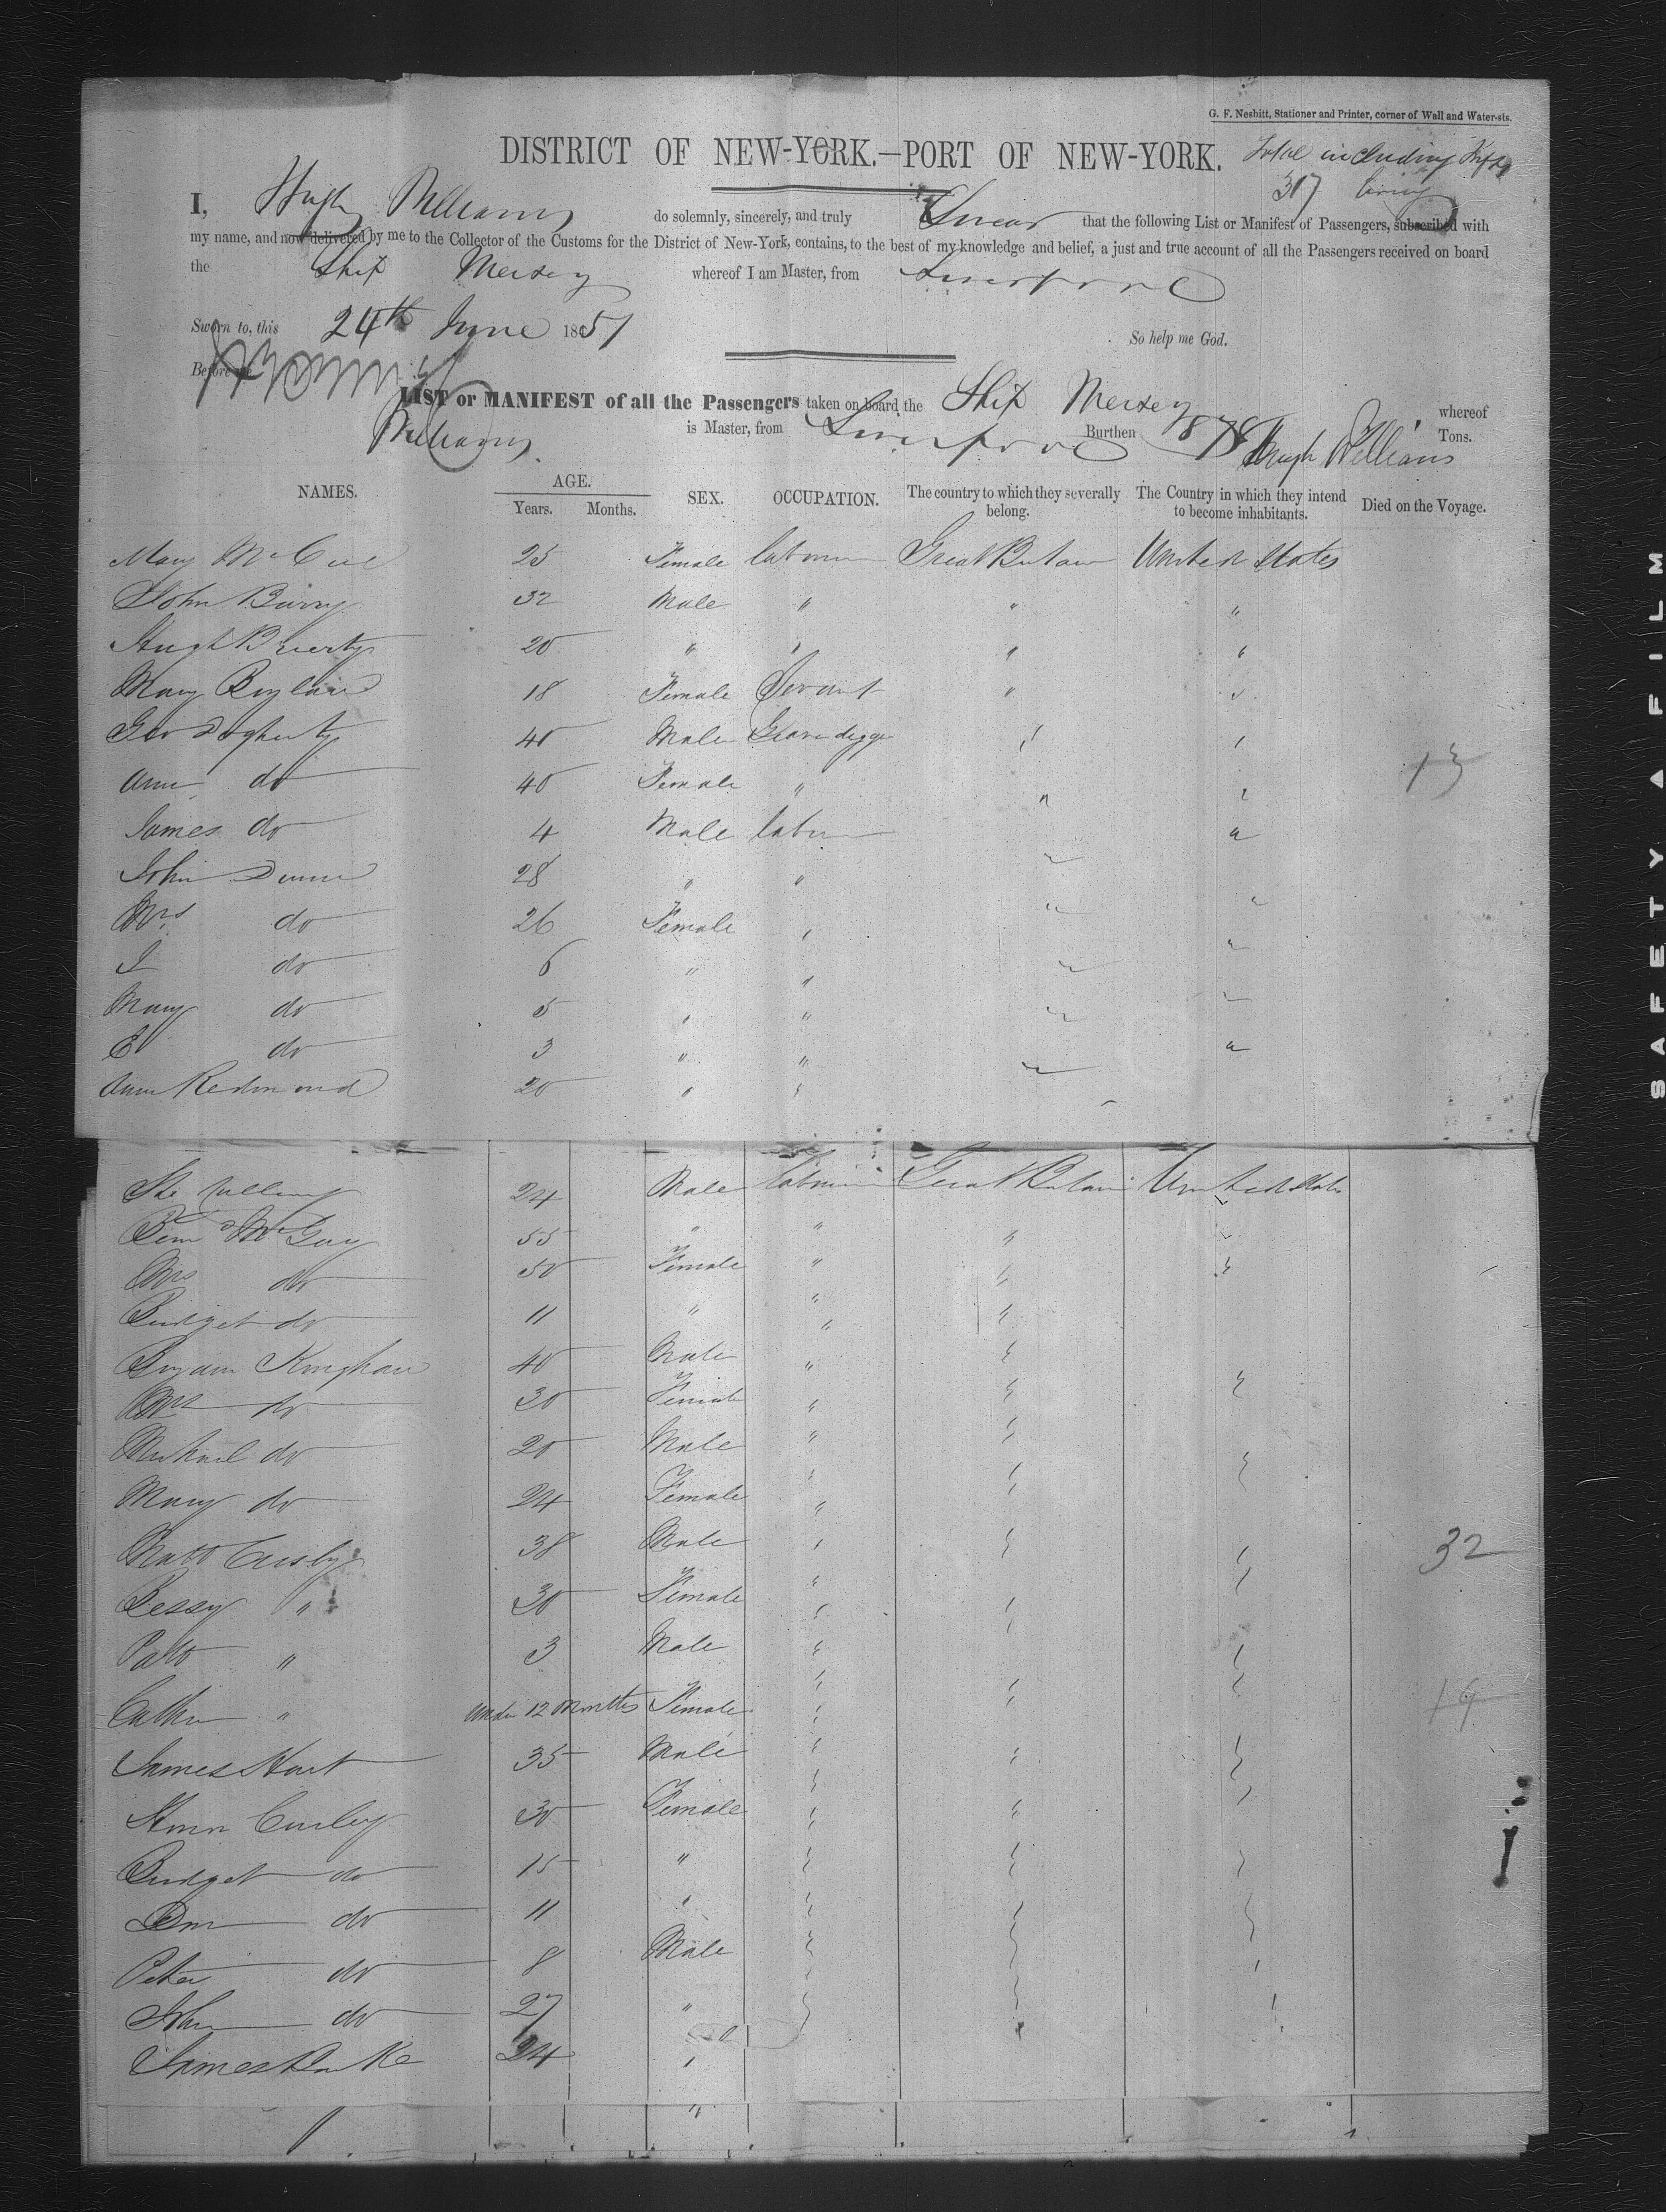 G. F. Nesbitt, Stationer and Printer, corner of Wall and Water-sts.
DISTRICT OF NEW-YORK.—PORT OF NEW-YORK.
Total including
317 living
I, Hugh Williams do solemnly, sincerely, and truly Swear that the following List or Manifest of Passengers, subscribed with
my name, and now delivered by me to the Collector of the Customs for the District of New-York, contains, to the best of my knowledge and belief, a just and true account of all the Passengers received on board
the Ship Mersey whereof I am Master, from Liverpool
Sworn to, this 24th June 1851 So help me God.
Before me
LIST or MANIFEST of all the Passengers taken on board the Ship Mersey whereof
Williams is Master, from Liverpool Burthen Tons.
Hugh Williams
NAMES. AGE. SEX. OCCUPATION. The country to which they severally belong. The Country in which they intend to become inhabitants. Died on the Voyage.
Years. Months.
Mary McCue 25 Female labourer Great Britain United States
John Barry 32 Male " " "
Hugh 20 " " " "
Mary Boylan 18 Female Servant " "
Geo Dogherty 40 Male Gravedigger " "
Ann do 40 Female " " "
13
James do 4 Male labour " "
John Dunn 28 " " "
Mrs do 26 Female " " "
I do 6 " " " "
Mary do 5 " " " "
E do 3 " " " "
Ann Redmond 20 " " "
24 Male labourer Great Britain United States
55 " " " "
Mrs do 50 Female " " "
Bridget do 11 " " "
40 Male " "
Mrs do 30 Female " " "
Michael do 20 Male " "
Mary do 24 Female " " "
Matt 38 Male " " "
32
Bessy " 30 Female " " "
Patt " 3 Male " "
Cathn " under 12 Months Female " " "
19
James Hart 35 Male " " "
Ann Curley 30 Female " " "
Bridget do 15 " " " "
do 11 " " " "
Peter do 8 Male " " "
John do 27 " " " "
James Burke 24 "
"